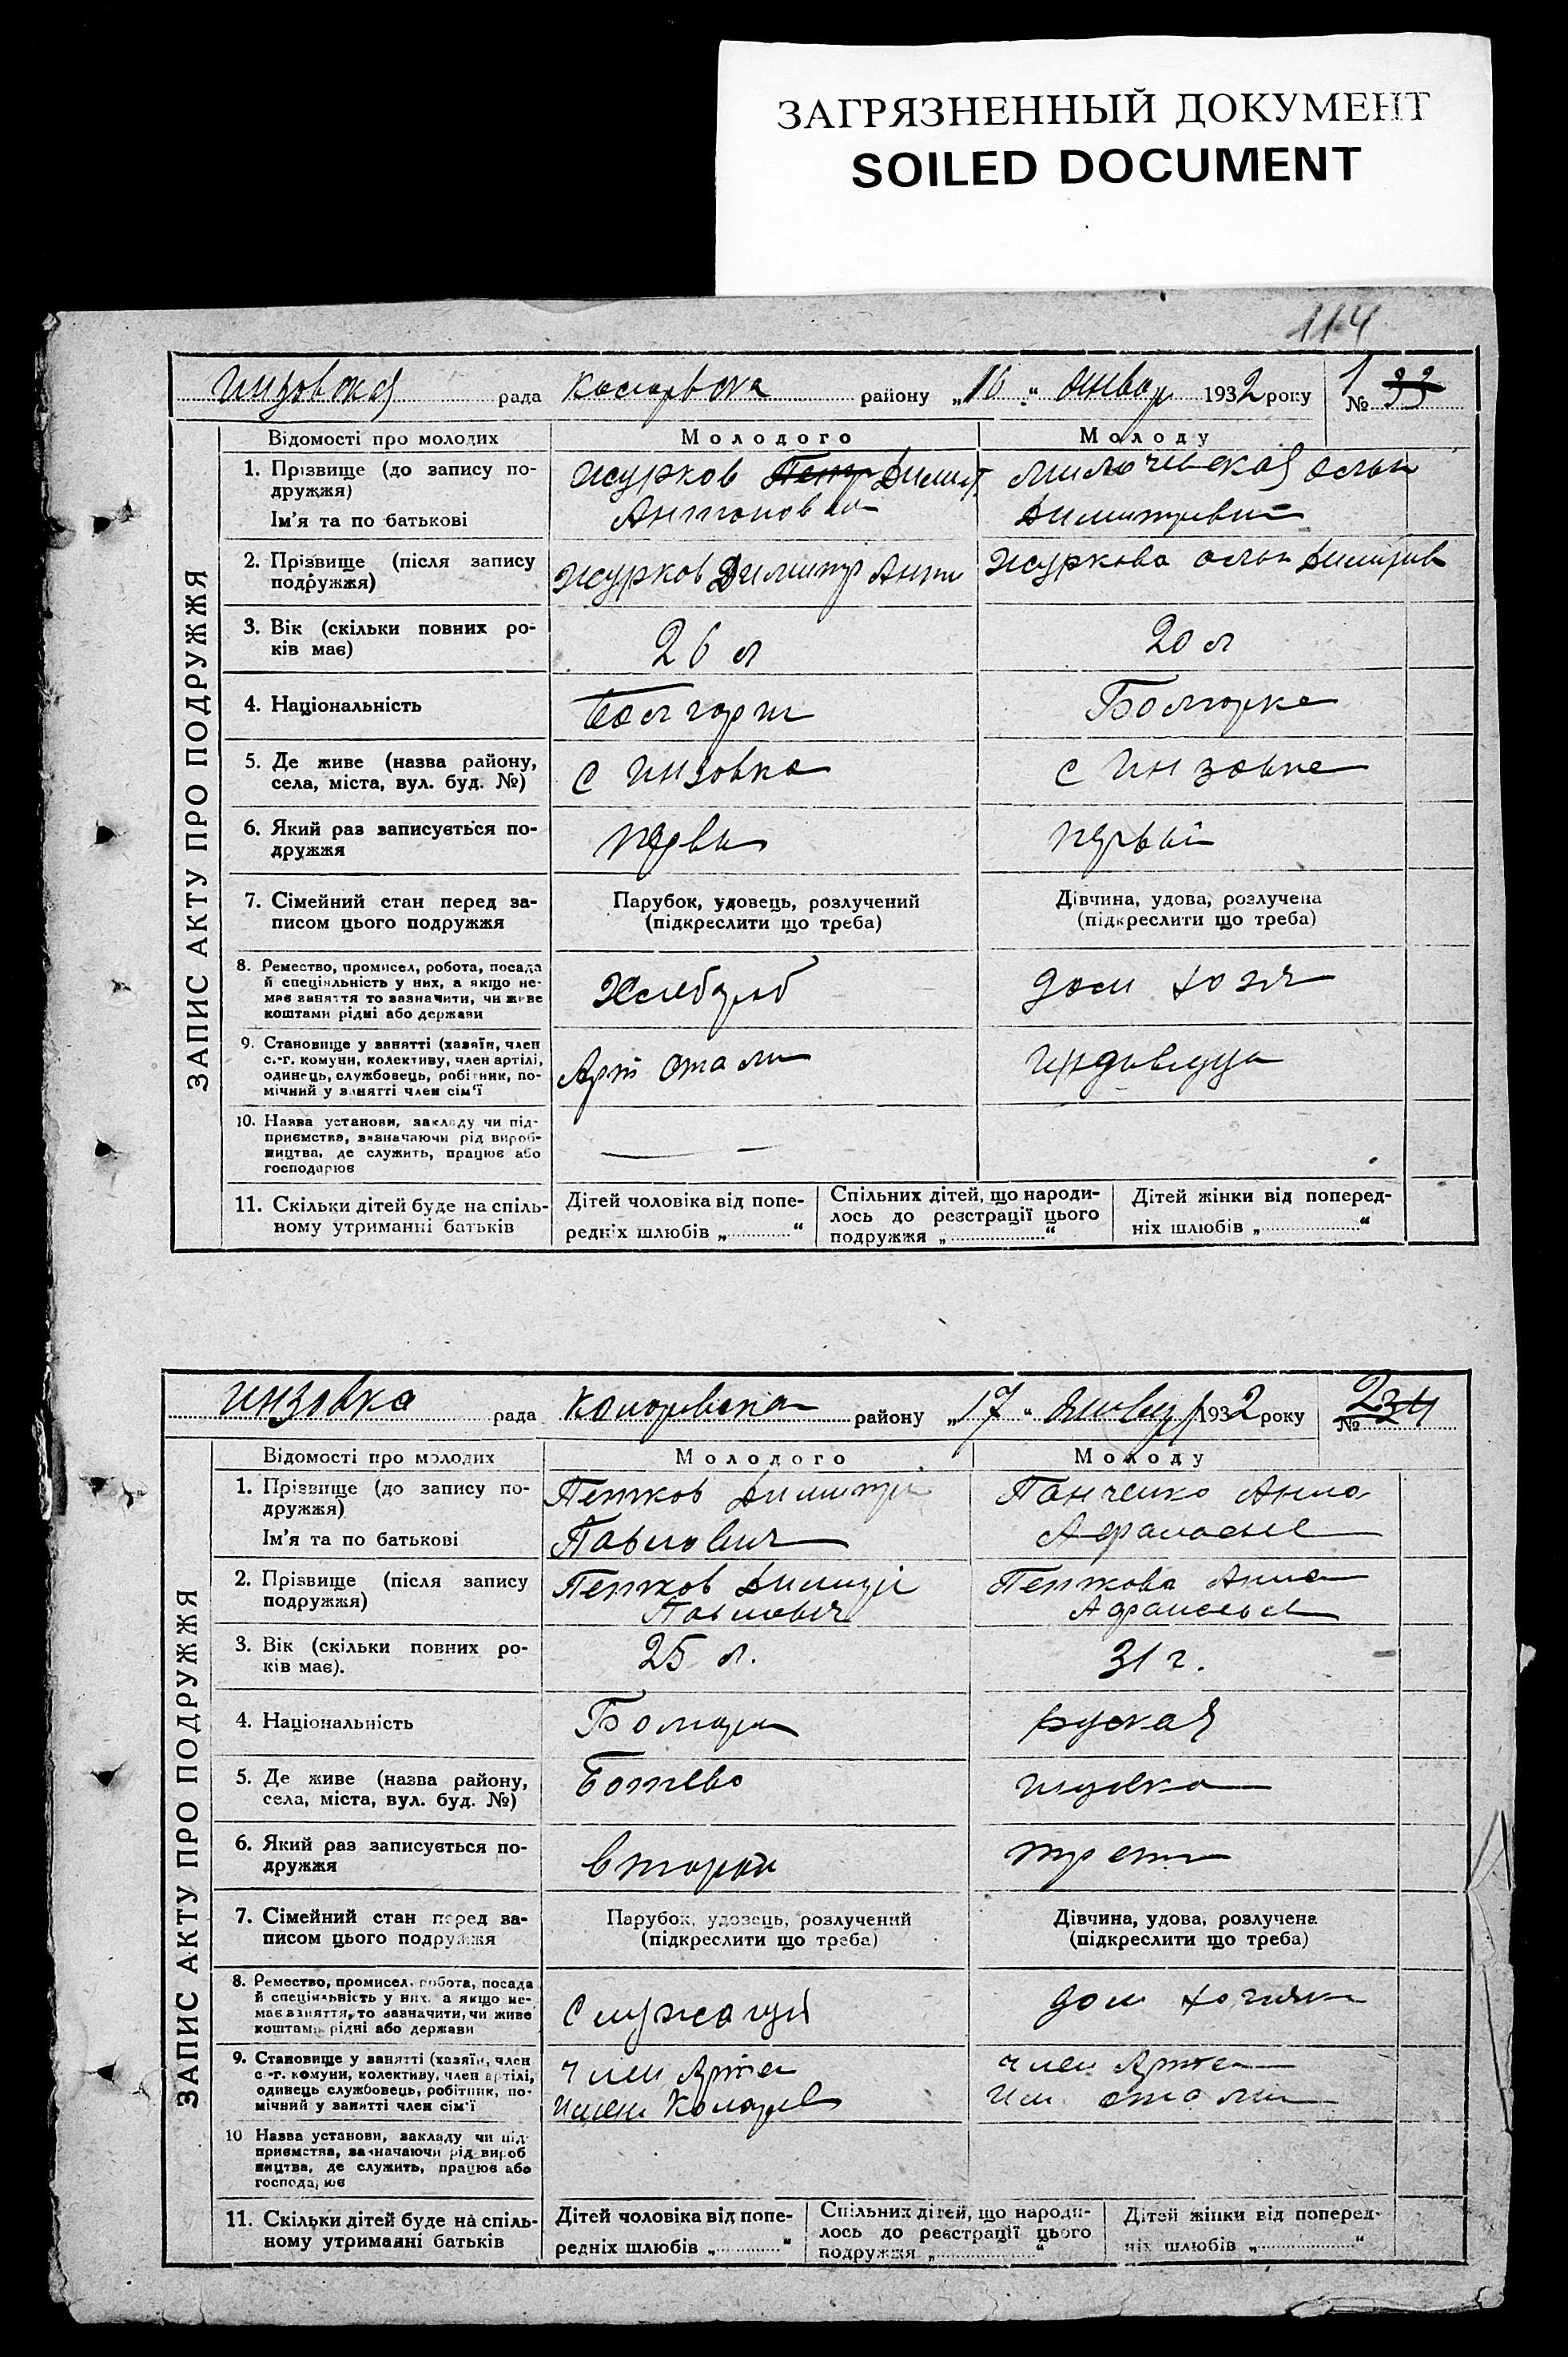 ЗАГРЯЗНЕННЫЙ ДОКУМЕНТ
SOILED DOCUMENT
114
ЗАПИС АКТУ ПРО ПОДРУЖЖЯ
Инзовка рада району „16“ Январ 1932 року № 1 33
Відомості про молодих Молодого Молоду
1. Прізвище (до запису по-
дружжя)
Ім'я та по батькові
Журков Димит
Антонов
Димитревн
2. Прізвище (після запису
подружжя)
Журков Димитр Анто
Журкова
3. Вік (скільки повних ро-
ків має)
26 л
20 л
4. Національність
Болгарин
Болгорка
5. Де живе (назва району,
села, міста, вул. буд. №)
с Инзовка
с Инзовка
6. Який раз записується по-
дружжя
первый
7. Сімейний стан перед за-
писом цього подружжя
Парубок, удовець, розлучений
(підкреслити що треба)
Дівчина, удова, розлучена
(підкреслити що треба)
8. Ремество, промисел, робота, посада
й спеціяльність у них, а якщо не-
має заняття то зазначити, чи живе
коштами рідні або держави
Хлебороб
дом хозя
9. Становище у занятті (хазяїн, член
с.-г. комуни, колективу, член артілі,
одинець, службовець, робітник, по-
мічний у занятті член сім'ї
Арт Стали
10. Назва установи, закладу чи під-
приємства, зазначаючи рід вироб-
ництва, де служить, працює або
господарює
11. Скільки дітей буде на спіль-
ному утриманні батьків
Дітей чоловіка від попе-
редніх шлюбів „ “
Спільних дітей, що народи-
лось до реєстрації цього
подружжя „ “
Дітей жінки від поперед-
ніх шлюбів „ “
ЗАПИС АКТУ ПРО ПОДРУЖЖЯ
Инзовка рада району „17“ 1932 року № 2 34
Відомості про молодих Молодого Молоду
1. Прізвище (до запису по-
дружжя)
Ім'я та по батькові
Петков Димитри
Павлович
Панченко Анна
Афанасьев
2. Прізвище (після запису
подружжя)
Петков Димитри
Павлович
Петкова Анна
Афанасьев
3. Вік (скільки повних ро-
ків має).
25 л.
31 г.
4. Національність
Болгарин
руская
5. Де живе (назва району,
села, міста, вул. буд. №)
Ботево
6. Який раз записується по-
дружжя
второй
трети
7. Сімейний стан перед за-
писом цього подружжя
Парубок, удовець, розлучений
(підкреслити що треба)
Дівчина, удова, розлучена
(підкреслити що треба)
8. Ремество, промисел, робота, посада
й спеціяльність у них, а якщо не-
має заняття, то зазначити, чи живе
коштами рідні або держави
Служащий
дом хозяйка
9. Становище у занятті (хазяїн, член
с.-г. комуни, колективу, член артілі,
одинець службовець, робітник, по-
мічний у занятті член сім'ї
член Арте
имени Коларов
член Арте
им Стали
10 Назва установи, закладу чи під-
приємства, зазначаючи рід вироб
ництва, де служить, працює або
господарює
11. Скільки дітей буде на спіль-
ному утриманні батьків
Дітей чоловіка від попе-
редніх шлюбів „ “
Спільних дітей, що народи-
лось до реєстрації цього
подружжя „ “
Дітей жінки від поперед-
ніх шлюбів „ “